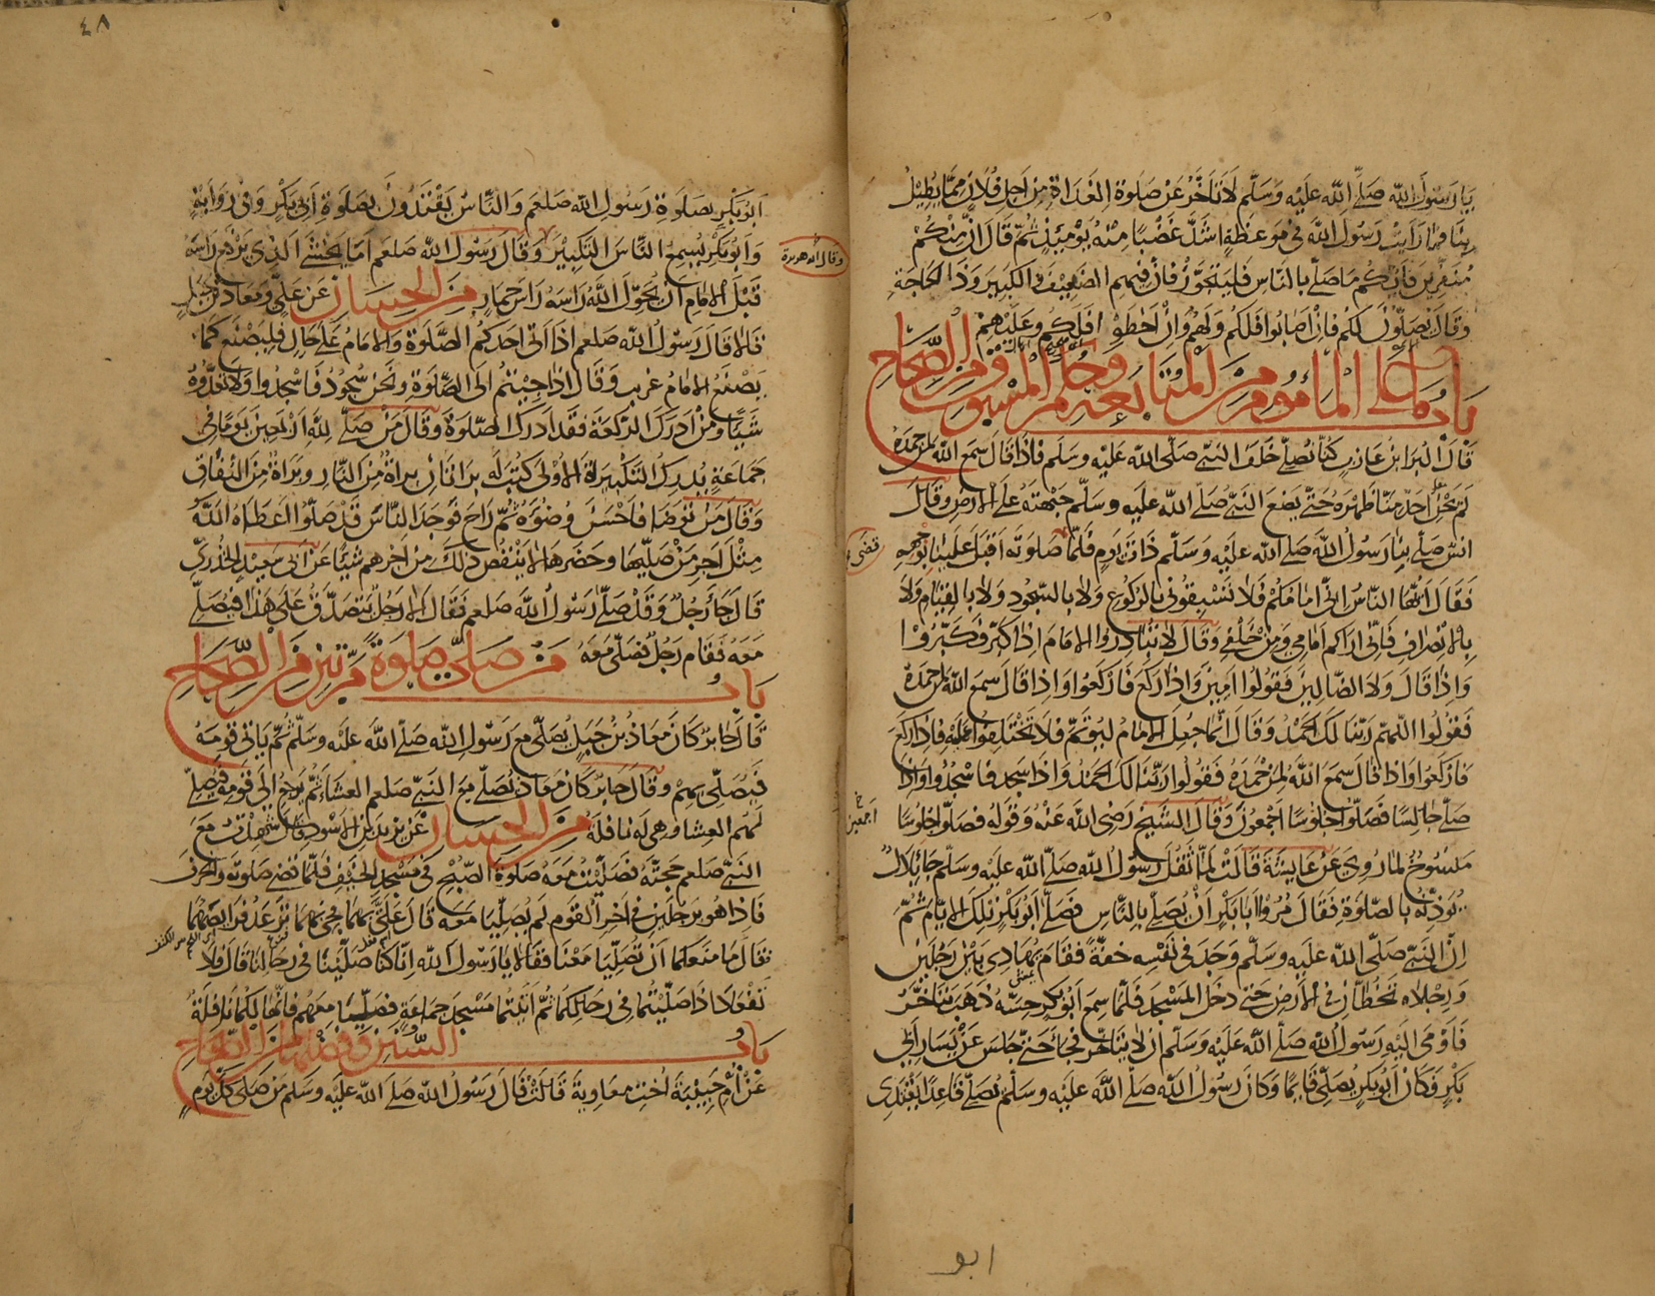 يا رسول الله صلى الله عليه وسلم لاتاخر عن صلوة الغداة من اجل فلان مما يطيل
بنا فما رايت رسول الله في موعظة اشد غضبا منه يومئذ ثم قال ان منكم
منفرين فايكم ما صلى بالناس فليتجوز فان فيهم الضعيف والكبير وذا الحاجة
وقال يصلون لكم فان اصابوا فلكم ولهم وان اخطوا فلكم وعليهم
باب ما على المأموم من المتابعة وحكم المسبوق من الصحاح
قال البرا بن عازب كنا نصلي خلف النبي صلى الله عليه وسلم فاذا قال سمع الله لمن حمده
لم يحن احد منا ظهره حتى يضع النبي صلى الله عليه وسلم جبهته على الارض وقال
انس صلى بنا رسول الله صلى الله عليه وسلم ذات يوم فلما صلوته اقبل علينا بوجهه
قضى
فقال ايها الناس اني امامكم فلا تسبقوني بالركوع ولا بالسجود ولا بالقيام ولا
بالانصراف فاني اراكم امامي ومن خلفي وقال لا تبادروا الامام اذا كبر فكبروا
واذا قال ولا الضالين فقولوا امين واذا ركع فاركعوا واذا قال سمع الله لمن حمده
فقولوا اللهم ربنا لك الحمد وقال انما جعل الامام ليؤتم فلا تختلفوا عليه فاذا ركع
فاركعوا واذا قال سمع الله لمن حمده فقولوا ربنا لك الحمد واذا سجد فاسجدوا واذا
صلى جالسا فصلوا جلوسا اجمعون وقال الشيخ رضى الله عنه وقوله فصلوا جلوسا
اجمعين
منسوخ لما روي عن عايشة قالت لما ثقل رسول الله صلى الله عليه وسلم جا بلال
يوذنه بالصلوة فقال مروا ابا بكر ان يصلي بالناس فصلى ابو بكر تلك الايام ثم
ان النبي صلى الله عليه وسلم وجد في نفسه خفة فقام يهادى بين رجلين
ورجلاه تخطان في الارض حتى دخل المسجد فلما سمع ابو بكر حسه ذهب يتاخر
فاومى اليه رسول الله صلى الله عليه وسلم ان لا يتاخر فجا حتى جلس عن يسار ابي
بكر وكان ابو بكر يصلي قايما وكان رسول الله صلى الله عليه وسلم يصلي قاعدا يقتدي
ابو
٤٨
ابو بكر بصلوة رسول الله صلعم والناس يقتدون بصلوة ابي بكر وفي رواية
وابو بكر يسمع الناس التكبير وقال رسول الله صلعم اما يخشى الذي يرفع راسه
وقال ابو هريرة
قبل الامام ان يحول الله راسه راس حمار من الحسان عن علي ومعاذ بن جبل
قالا قال رسول الله صلعم اذا اتى احدكم الصلوة والامام على حال فليصنع كما
يصنع الامام غريب وقال اذا جيتم الى الصلوة ونحن سجود فاسجدوا ولا تعدوه
شيا ومن ادرك الركعة فقد ادرك الصلوة وقال من صلى لله اربعين يوما في
جماعة يدرك التكبيرة الاولى كتب له براتان براة من النار وبراة من النفاق
وقال من توضا فاحسن وضوه ثم راح فوجد الناس قد صلوا اعطاه الله
مثل اجر من صلاها وحضرها لا ينقص ذلك من اجرهم شيا عن ابي سعيد الخدري
قال جا رجل وقد صلى رسول الله صلعم فقال الا رجل يتصدق على هذا فيصلي
معه فقام رجل فصلى معه
باب من صلى صلوة مرتين من الصحاح
قال جابر كان معاذ بن جبل يصلي مع رسول الله صلى الله عليه وسلم ثم ياتي قومه
فيصلي بهم وقال جابر كان معاذ يصلي مع النبي صلعم العشا ثم يرجع الى قومه فيصلي
لهم العشا وهي له نافلة من الحسان عن يزيد بن الاسود قال شهدت مع
النبي صلعم حجته فصليت معه صلوة الصبح في مسجد الخيف فلما قضى صلوته وانحرف
فاذا هو برجلين في اخر القوم لم يصليا معه قال علي بهما فجي بهما ترعد فرايصهما
فقال ما منعكما ان تصليا معنا فقالا يا رسول الله انا كنا صلينا في رحالنا قال فلا
تفعلا اذا صليتما في رحالكما ثم اتيتما مسجد جماعة فصليا معهم فانها لكما نافلة
باب السنن وفضلها من الصحاح
عن ام حبيبة اخت معاوية قالت قال رسول الله صلى الله عليه وسلم من صلى كل يوم